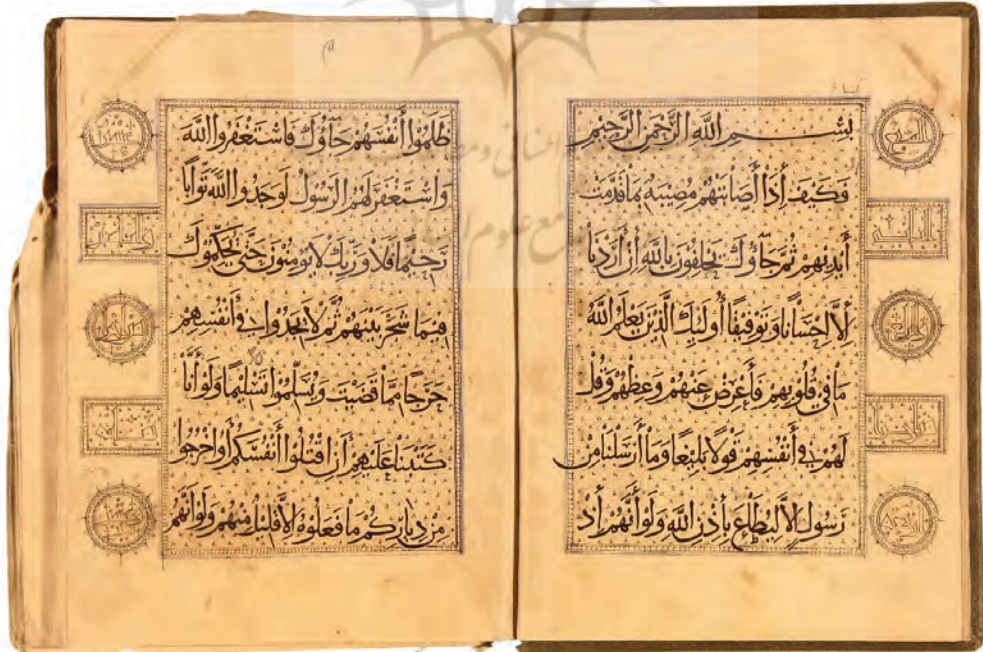 بسم الله الرحمن الرحيم
فكيف إذا أصابتهم مصيبة بما قدمت
أيديهم ثم جاؤك يحلفون بالله إن أردنا
إلا إحسانا وتوفيقا أولئك الذين يعلم الله
ما في قلوبهم فأعرض عنهم وعظهم وقل
لهم في أنفسهم قولا بليغا وما أرسلنا من
رسول إلا ليطاع بإذن الله ولو أنهم إذ
ظلموا أنفسهم جاؤك فاستغفروا الله
واستغفر لهم الرسول لوجدوا الله توابا
رحيما فلا وربك لا يؤمنون حتى يحكموك
فيما شجر بينهم ثم لا يجدوا في أنفسهم
حرجا مما قضيت ويسلموا تسليما ولو أنا
كتبنا عليهم أن اقتلوا أنفسكم أو اخرجوا
من دياركم ما فعلوه إلا قليلا منهم ولو أنهم